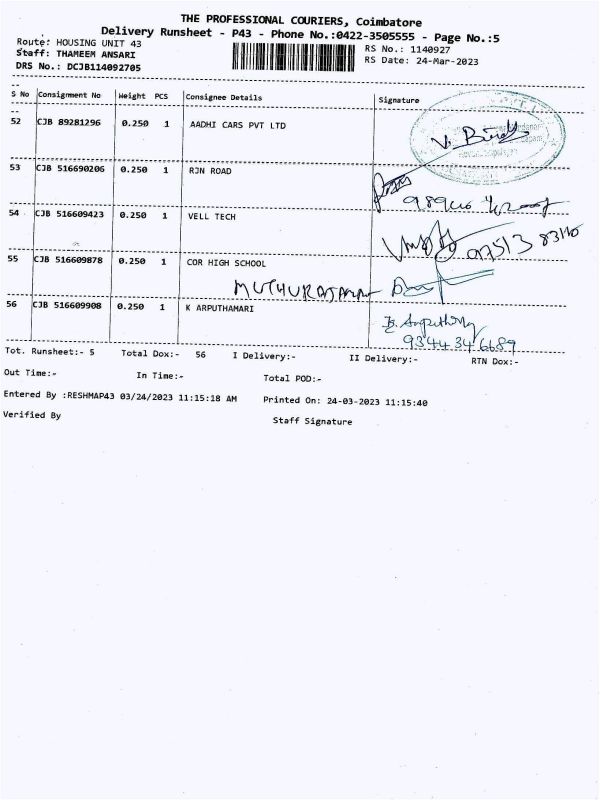 THE PROFESSIONAL COURIERS, Coimbatore
Delivery Runsheet - P43 - Phone No.:0422-3505555 - Page No.:5
Route: HOUSING UNIT 43
RS No.: 1140927
Staff: THAMEEM ANSARI
RS Date: 24-Mar-2023
DRS No.: DCJB114092705
S No Consignment No Weight PCS Consignee Details Signature
52 CJB 89281296 0.250 1 AADHI CARS PVT LTD
53 CJB 516690206 0.250 1 RJN ROAD
54 CJB 516609423 0.250 1 VELL TECH
55 CJB 516609878 0.250 1 COR HIGH SCHOOL
56 CJB 516609908 0.250 1 K ARPUTHAMARI
9344346689
Tot. Runsheet:- 5 Total Dox:- 56 I Delivery:- II Delivery:- RTN Dox:-
Out Time:- In Time:- Total POD:-
Entered By :RESHMAP43 03/24/2023 11:15:18 AM Printed On: 24-03-2023 11:15:40
Verified By Staff Signature